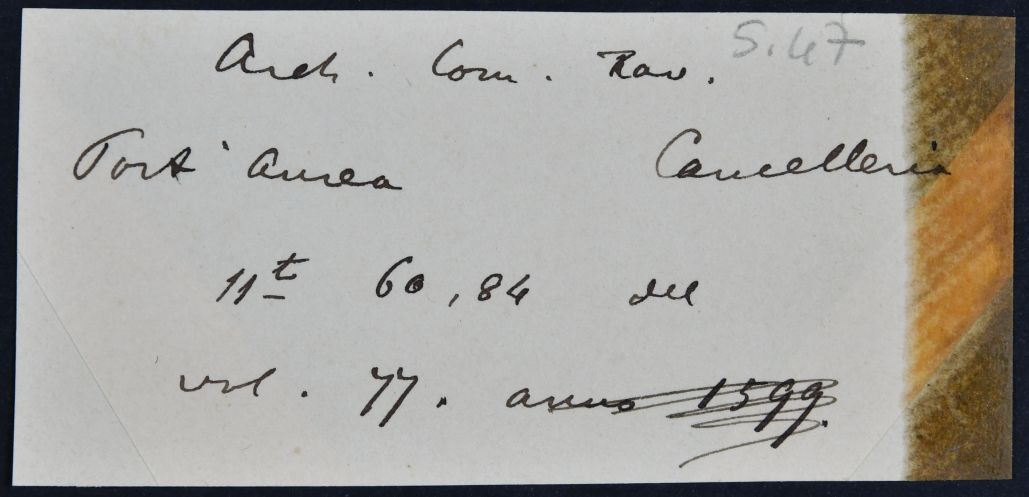 S.47
Arch. Com. Rav.
Port' aurea Cancelleria
11t 60, 84 del
vol. 77. anno 1599.